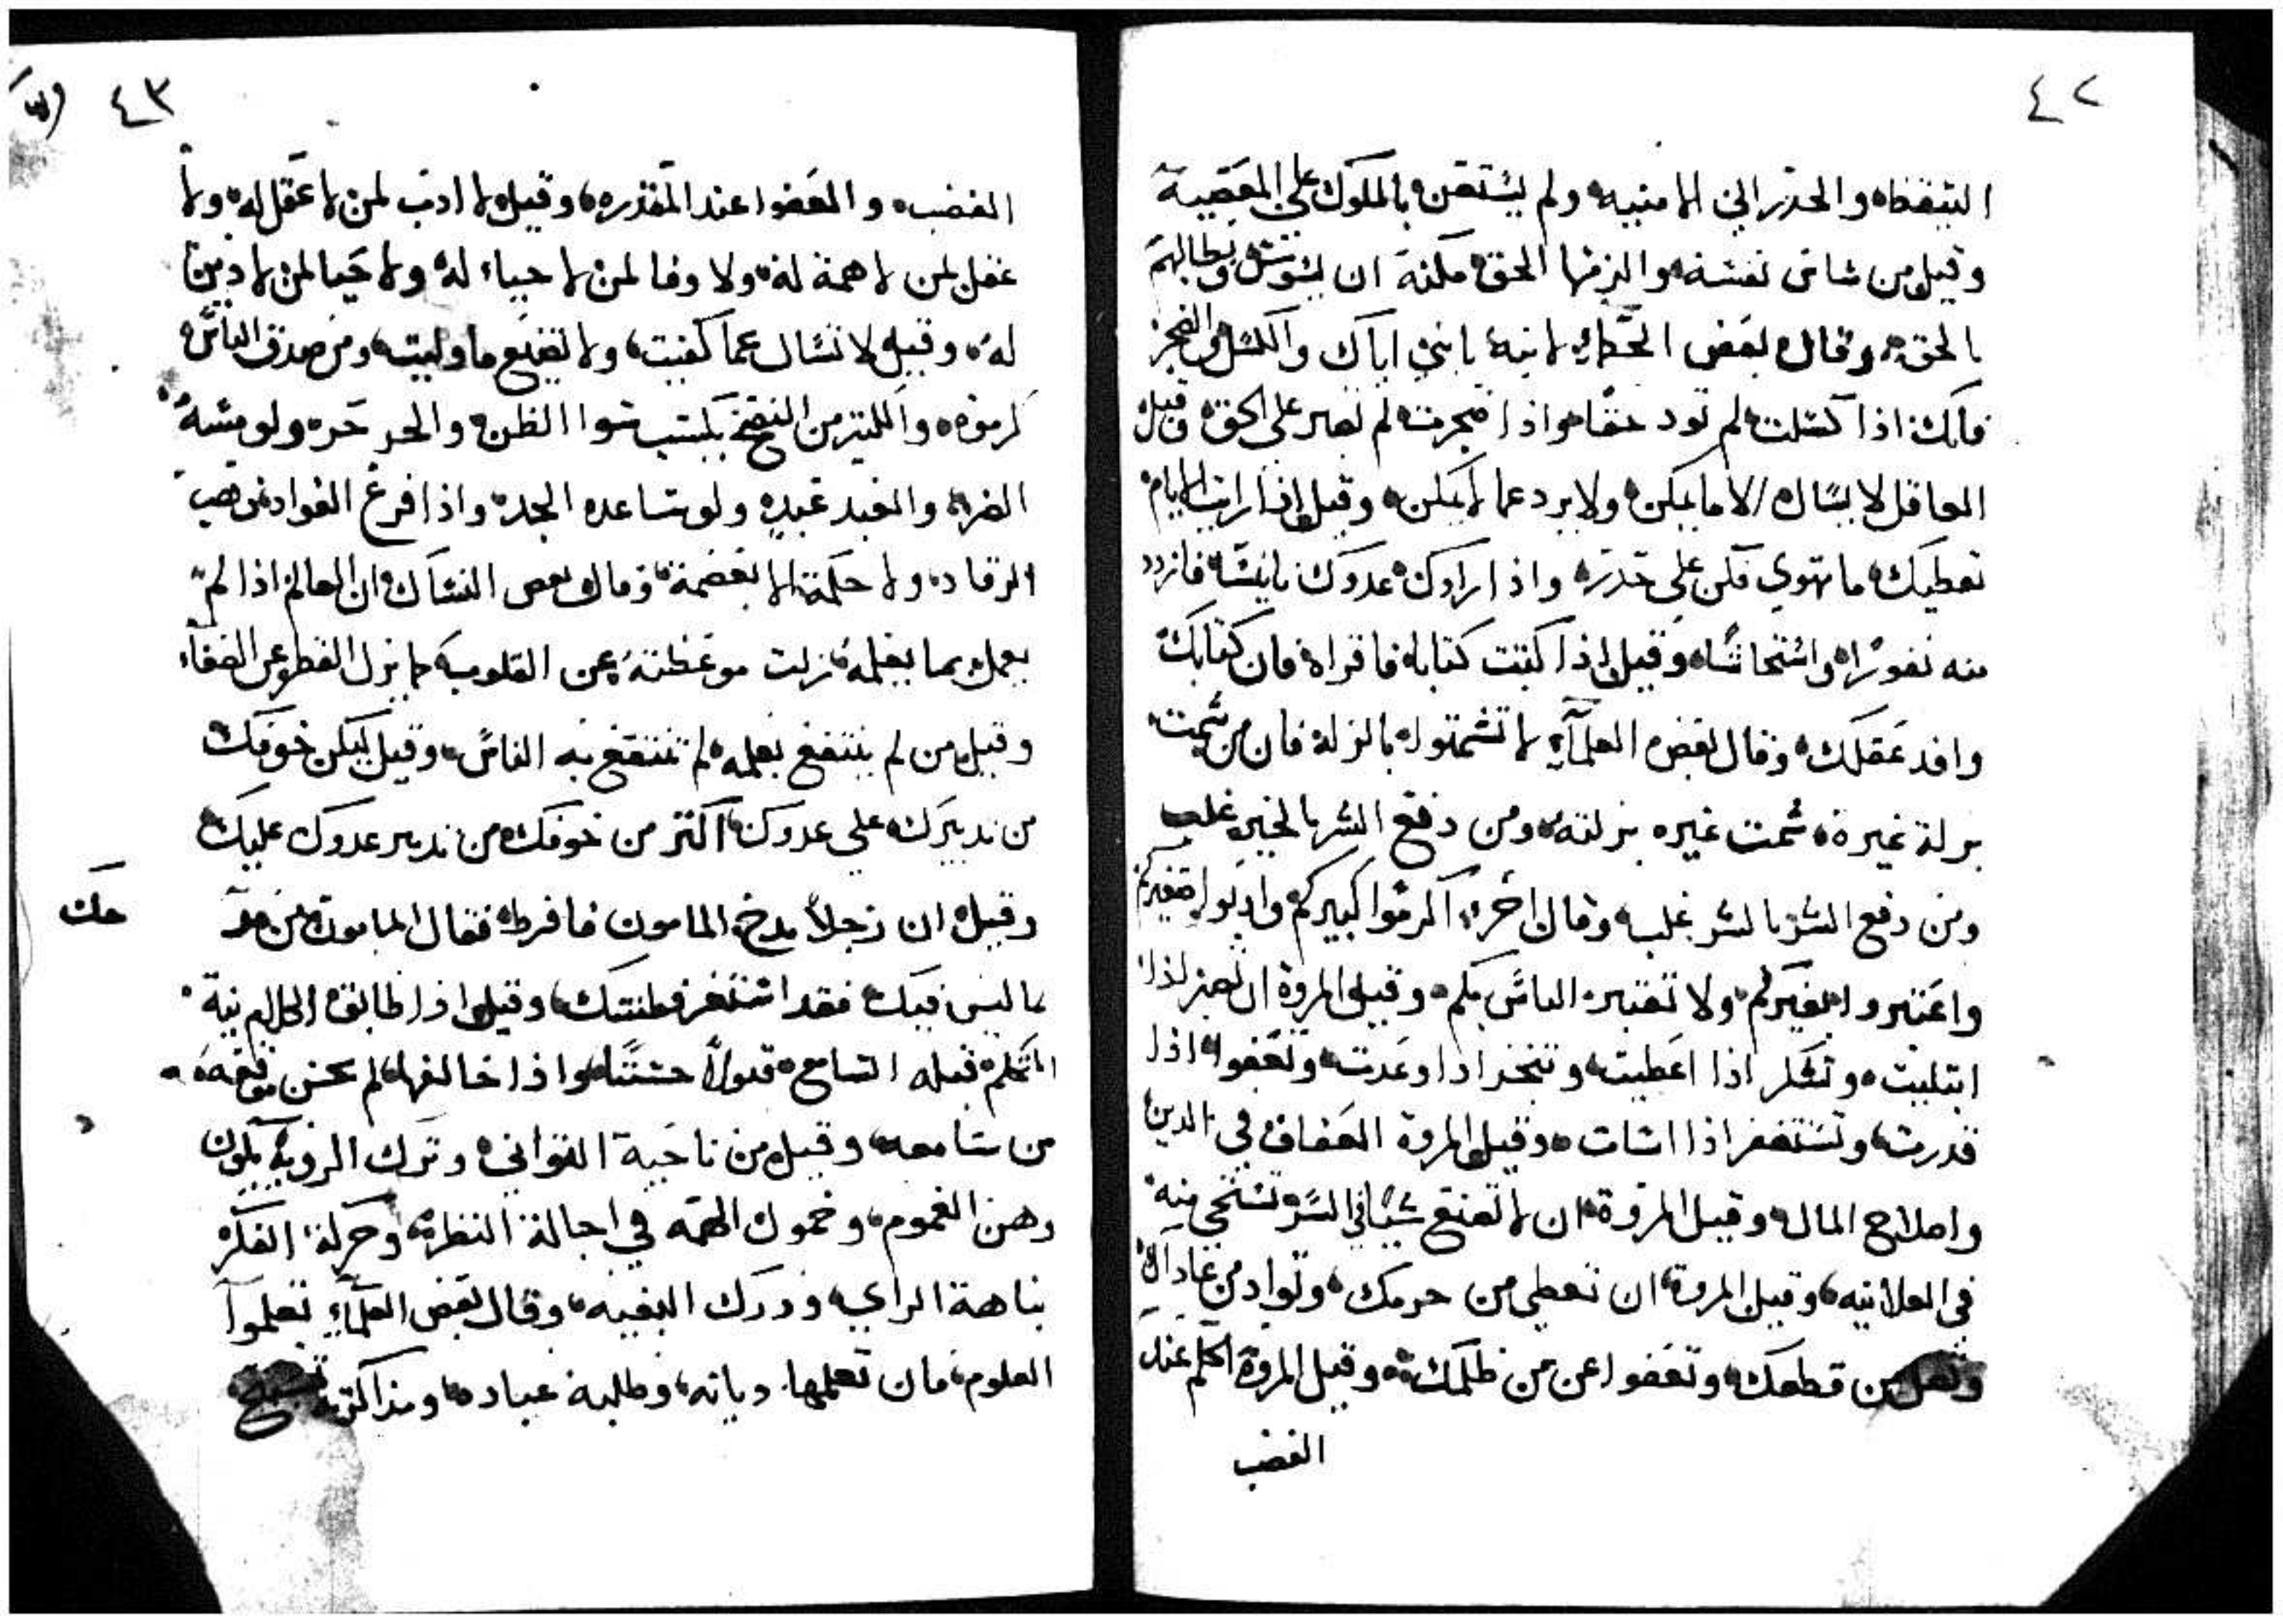 ٤٢
التيقظ والحذر الي الامنيه ولم يستعن بالملوك علي المعصية
وقيل من ساس نفسه والزمها الحق مكنه ان يسوس ويطالبهم
بالحق وقال بعض الحكماء لابنه يا بني اياك والكسل والضجر
فانك اذا كسلت لم تود حقا واذا ضجرت لم تصبر على الحق وقيل
العاقل لا يسال الا ما يمكن ولا يرد عما لا يمكن وقيل اذا رايت الايام
تعطيك ما تهوي فكن علي حذر واذا رادك عدوك بانسه فازدد
منه نفورا واستحاشا وقيل اذا كتبت كتابا فاقراه فان كتابك
وافد عقلك وقال بعض العلمآء لا تشمتوا بالزلة فان من شمت
بزلة غيره شمت غيره بزلته ومن دفع الشر بالخير غلب
ومن دفع الشر بالشر غلب وقال اخر اكرموا كبيركم وادبوا صغيركم
واعتبروا بغيركم ولا تعتبر الناس بكم وقيل المروة ان تصبر اذا
ابتليت وتشكر اذا اعطيت وتنجز اذا وعدت وتعفوا اذا
قدرت وتستغفر اذا اسات وقيل المروة العفاف في الدين
واصلاح المال وقيل المروة ان لا تصنع شيئا في السر وتستحي منه
في العلانيه وقيل المروة ان تعطي من حرمك وتواد من عاداك
وتصل من قطعك وتعفوا عن من ظلمك وقيل المروة الحلم عند
الغضب
٤٣
الغضب والعفوا عند المقدره وقيل لا ادب لمن لا عقل له ولا
عقل لمن لا همة له ولا وفا لمن لا حياء له ولا حيا لمن لا دين
له وقيل لا تسال عما كفيت ولا تضيع ما وليت ومن صدق الناس
كرموه والكثير من النصح يكتسب سوا الظن والحر حر ولو مسه
الضر والعبد عبد ولو ساعده الجد واذا فرغ الفواد ذهب
الرقاد ولا حكمة الا بعصمة وقال بعض النساك ان العالم اذا لم
يعمل بما يعلمه زلت موعظته عن القلوب كما يزل القطر عن الصفاء
وقيل من لم ينتفع بعلمه لم تنتفع به الناس وقيل ليكن خوفك
من تدبيرك علي عدوك اكثر من خوفك من تدبير عدوك عليك
وقيل ان رجلا مدح المامون فافرط فقال المامون من مدحك
بما ليس فيك فقد استغر فطنتك وقيل اذا طابق الكلام نية
المتكلم قبله السامع قبولا حسنا واذا خالفها لم يحسن موقعه
من سامعه وقيل من ناحية التواني وترك الروية يكون
وهن الغموم وخمول الهمه في اجالة النظر وحركة الفكر
نباهة الراي ودرك البغيه وقال بعض العلمآء تعلموا
العلوم فان تعلمها ديانه وطلبه عباده ومذاكرته تسبيح